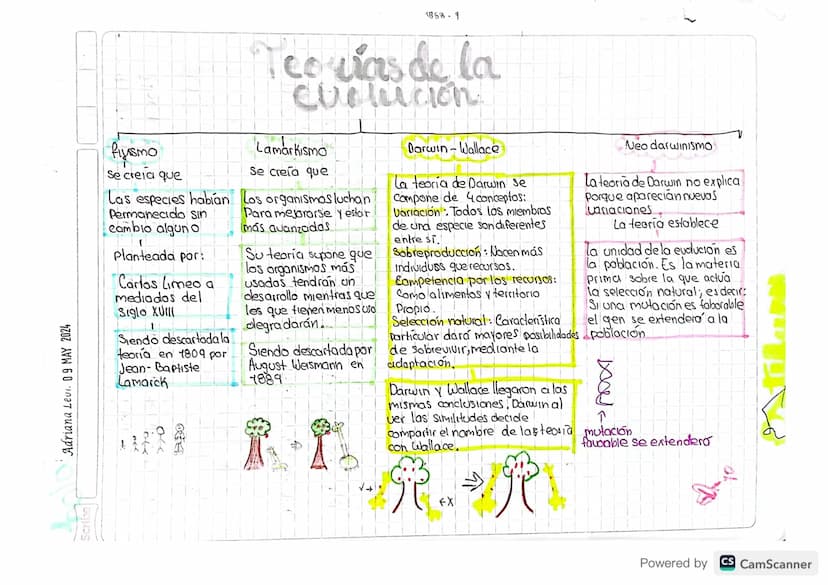 1858 - 9
Teorías de la
evolución
Fijismo
se creía que
Las especies habían
Permanecido sin
cambio alguno
Planteada por:
Carlos Lineo a
mediados del
siglo XVIII
Siendo descartada la
teoría en 1809 por
Jean-Baptiste
Lamarck
Lamarkismo
se creía que
Los organismos luchan
Para mejorarse y estar
más avanzados
Su teoría supone que
los organismos más
usados tendrán un
desarollo mientras que
los que tienen menos uso
degradarán.
Siendo descartada por
August Weismann en
1889
Darwin - Wallace
La teoría de Darwin se
compone de 4 conceptos:
Variación: Todos los miembros
de una especie son diferentes
entre sí.
Sobreproducción: Nacen más
individuos que recursos.
Competencia por los recursos:
Como alimentos y territorio
Propio.
Selección natural: Característica
particular dará mayores posibilidades
de sobrevivir, mediante la
adaptación.
Darwin y Wallace llegaron a las
mismas conclusiones, Darwin al
ver las similitudes decide
compartir el nombre de las teoría
con Wallace.
Neo darwinismo
La teoría de Darwin no explica
porque aparecían nuevas
variaciones
La teoría establece
la unidad de la evolución es
la población. Es la materia
prima sobre la que actúa
la selección natural, es decir:
Si una mutación es faborable
el gen se extenderá a la
población
mutación
favorable se extenderá
Adriana Levi. 09 MAY 2024
Scribe
Powered by CS CamScanner